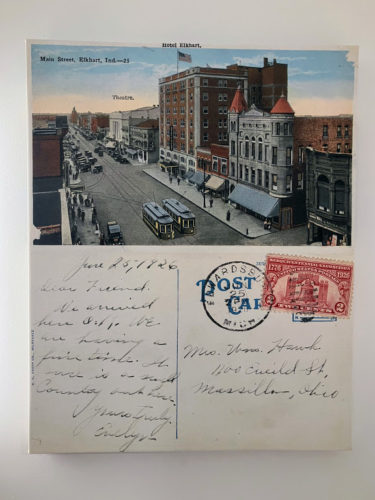 Hotel Elkhart,
Main Street, Elkhart, Ind.—25
Theatre.
June 25, 1926
Dear Friend.
We arrived
here O.K. We
are having a
fine time. It
sure is a
Country out here
Yours truly.
Evelyn
POST
CARD
EDWARDSB
MICH
1776 1926
2 2
Mrs. Wm. Hawk
1100 Euclid St,
Massillon, Ohio